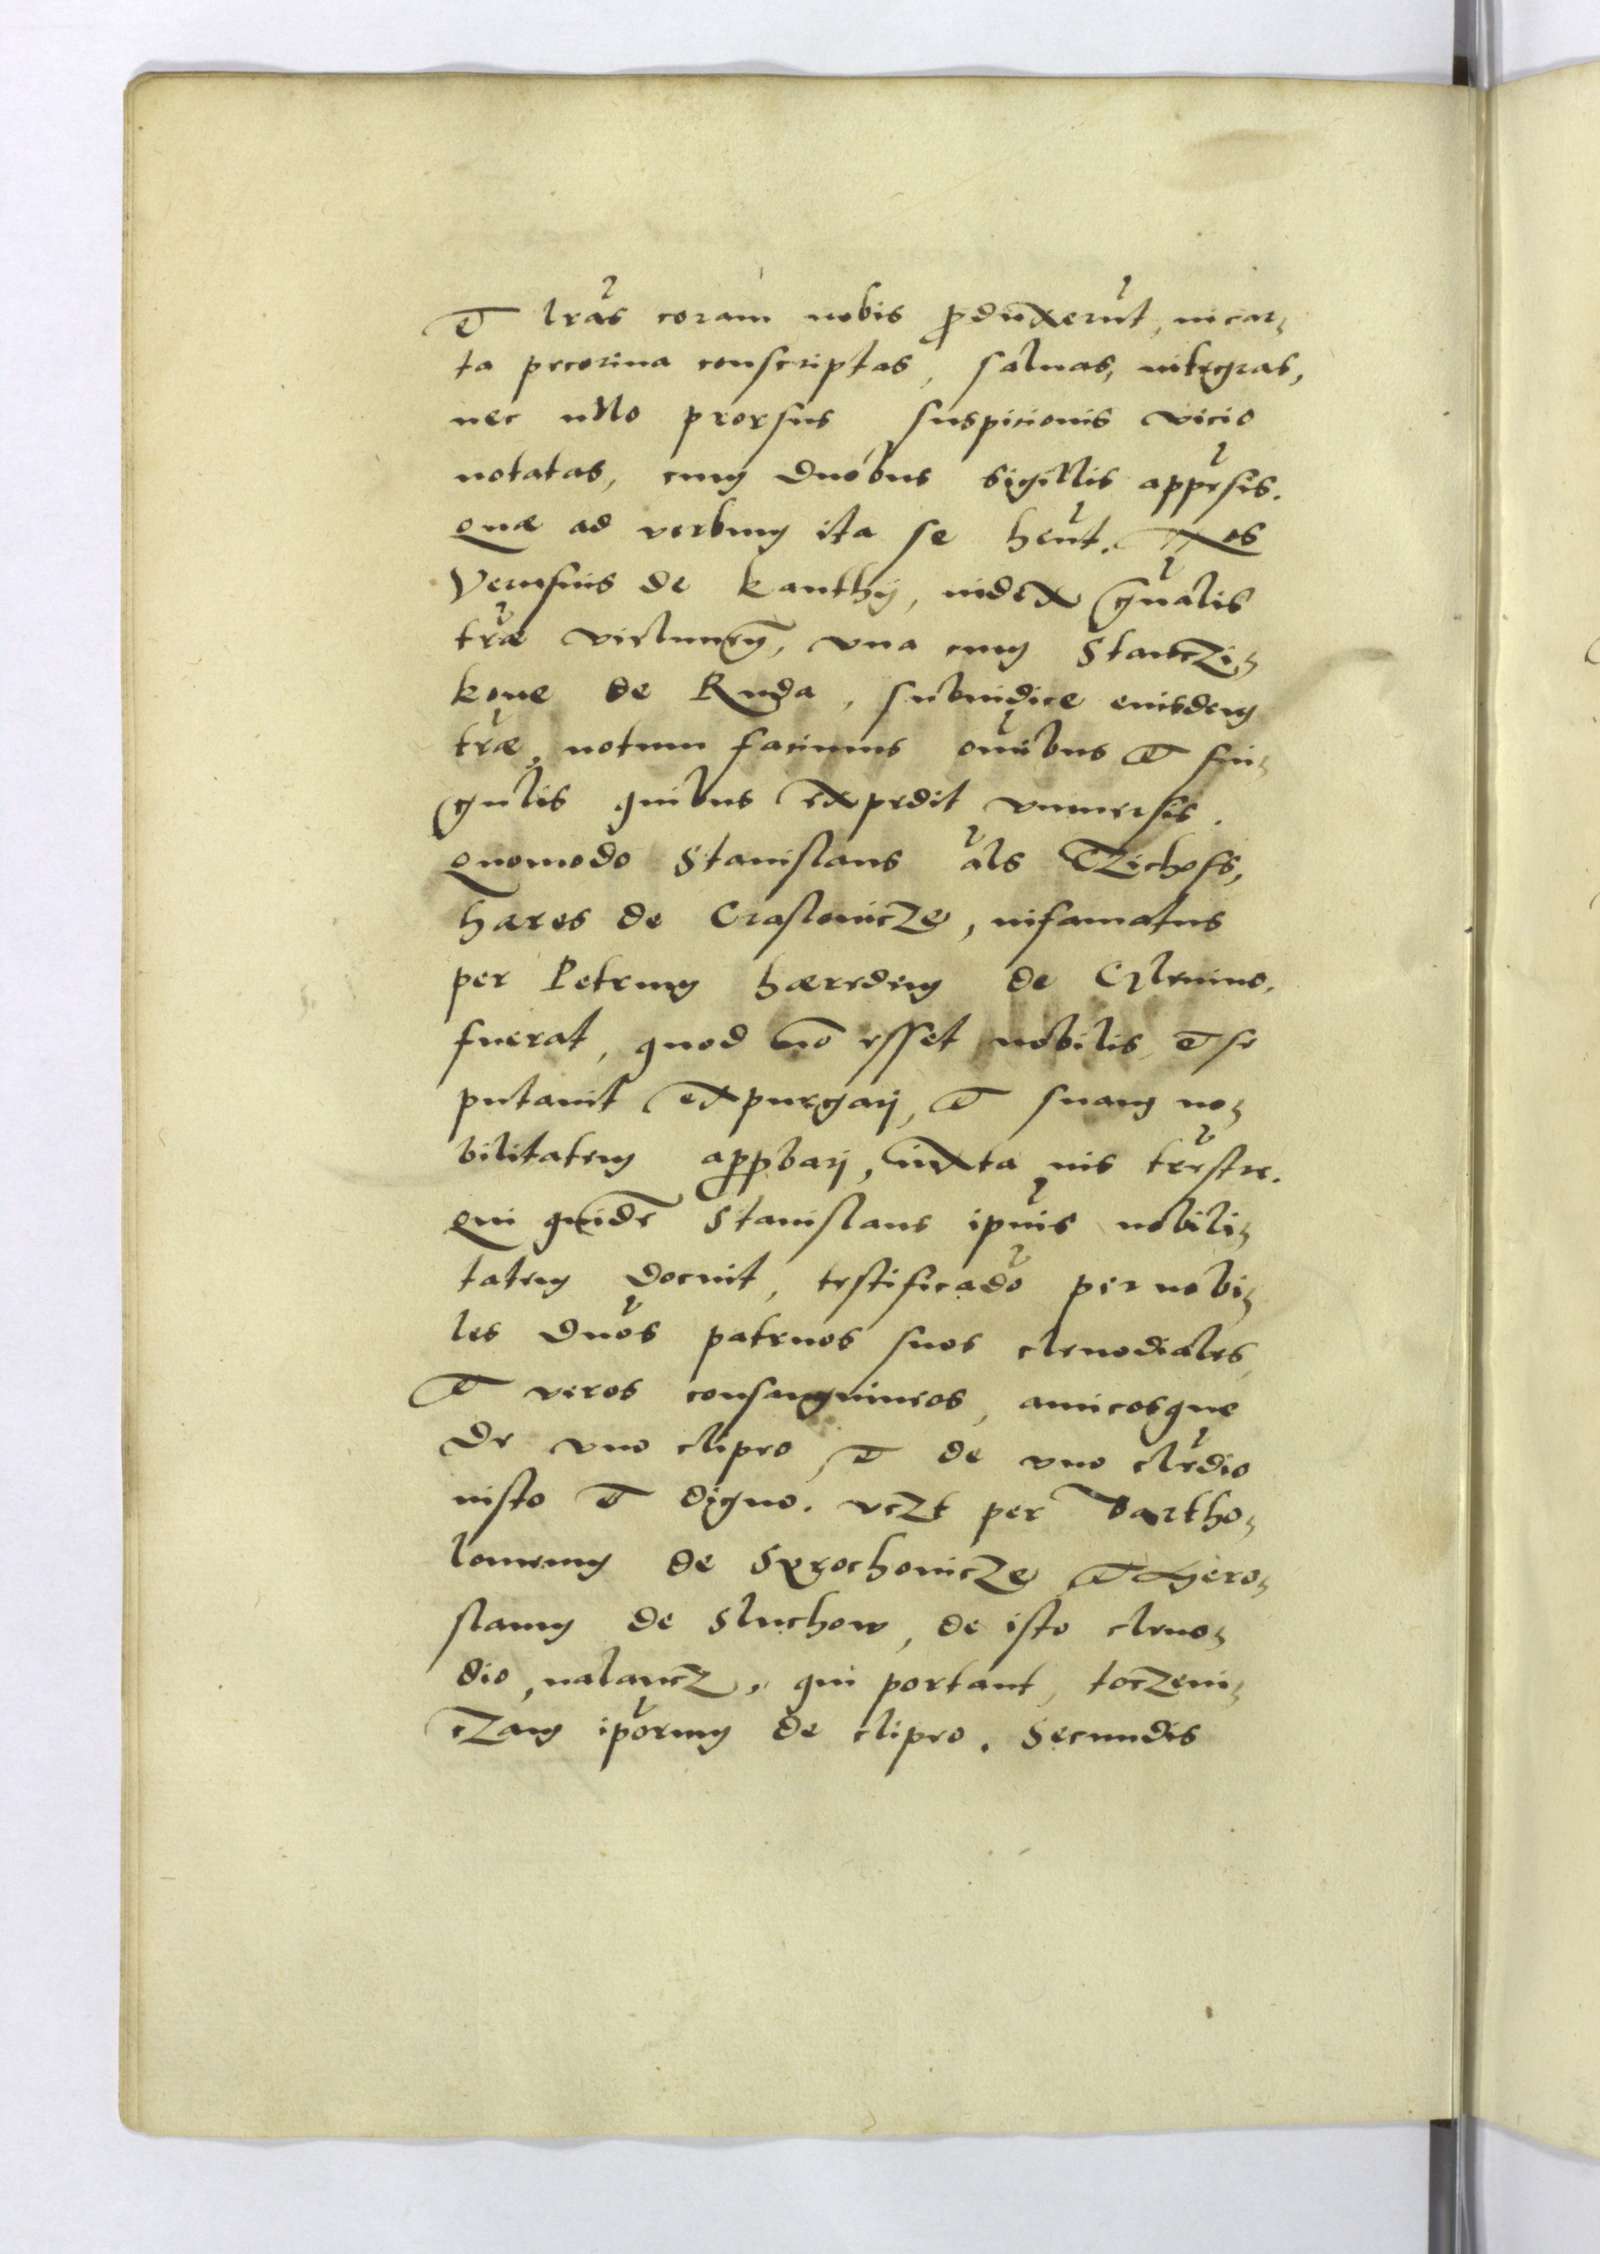 et lras coram nobis produxerut, in car-
ta pecorina conscriptas, saluas, integras,
nec ullo prorsus suspicionis vicio
notatas, cum duobus sigillis appesis.
Quæ ad verbum ita se hent. Nos
Vernsius de Kanthy, iudex gnalis
træ vielunen, vna cum Stanczi-
kone de Ruda, subiudice eiusdem
træ, notum facimus omibus et sin-
gulis quibus expedit vniuersis.
Quomodo Stanislaus als Czichoss,
hæres de Craslouicze, infamatus
per Petrum hæredem de
fuerat, quod no esset nobilis, et se
putauit expurgari, et suam no-
bilitatem approbari, iuxta ius trestre.
Qui quide Stanislaus ipius nobili-
tatem docuit, testificado per nobi-
les duos patruos suos clenodiales,
et veros consanguineos, amicosque
de vno clipeo, et de vno cledio
iusto et digno. vczt per Bartho-
lomeum de Skrochouicze et Hero-
slaum de Sluchow, de isto cleno-
dio, nalancz, qui portant, toczeni-
czam iporum de clipeo. Secundis